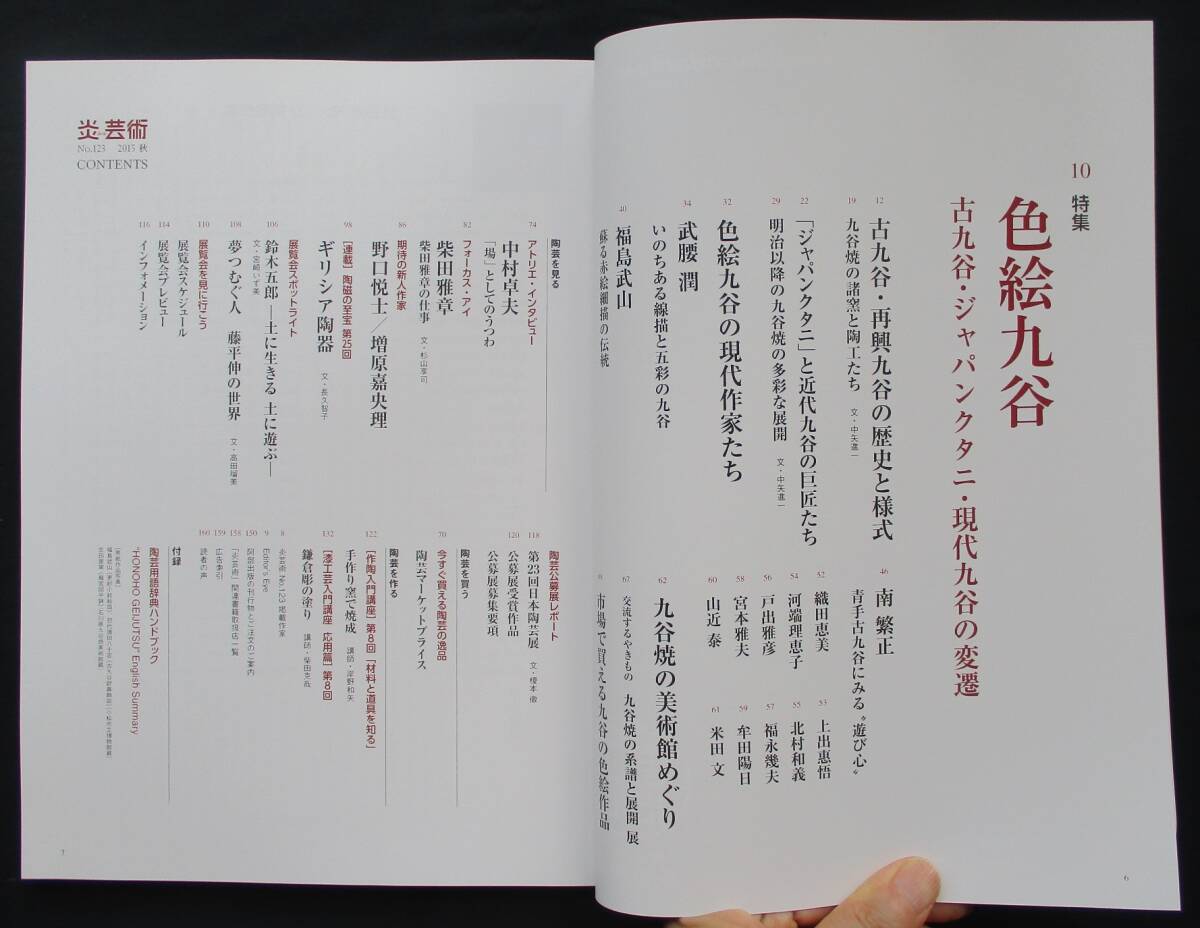 10
特集
色絵九谷
古九谷・ジャパンクタニ・現代九谷の変遷
12
古九谷・再興九谷の歴史と様式
19
九谷焼の諸窯と陶工たち 文・中矢進一
22
「ジャパンクタニ」と近代九谷の巨匠たち
29
明治以降の九谷焼の多彩な展開 文・中矢進一
32
色絵九谷の現代作家たち
34
武腰 潤
いのちある線描と五彩の九谷
40
福島武山
蘇る赤絵細描の伝統
46
南 繁正
青手古九谷にみる“遊び心”
52
織田恵美
53
上出惠悟
54
河端理恵子
55
北村和義
56
戸出雅彦
57
福永幾夫
58
宮本雅夫
59
牟田陽日
60
山近 泰
61
米田 文
62
九谷焼の美術館めぐり
67
交流するやきもの 九谷焼の系譜と展開 展
市場で買える九谷の色絵作品
6
炎芸術
No.123 2015 秋
CONTENTS
陶芸を見る
74
アトリエ・インタビュー
中村卓夫
「場」としてのうつわ
82
フォーカス・アイ
柴田雅章
柴田雅章の仕事 文・杉山享司
86
期待の新人作家
野口悦士／増原嘉央理
98
［連載］陶磁の至宝 第25回
ギリシア陶器 文・長久智子
展覧会スポットライト
106
鈴木五郎 ―土に生きる 土に遊ぶ―
文・宮崎いず美
108
夢つむぐ人 藤平伸の世界 文・高田瑠美
110
展覧会を見に行こう
展覧会スケジュール
114
展覧会プレビュー
116
インフォメーション
陶芸公募展レポート
118
第23回日本陶芸展 文・榎本 徹
120
公募展受賞作品
公募展募集要項
陶芸を買う
70
今すぐ買える陶芸の逸品
陶芸マーケットプライス
陶芸を作る
122
［作陶入門講座］第8回「材料と道具を知る」
手作り窯で焼成 講師・岸野和矢
132
［漆工芸入門講座 応用篇］第8回
鎌倉彫の塗り 講師・柴田克哉
8
炎芸術 No.123 掲載作家
9
Editor's Eye
150
阿部出版の刊行物とご注文のご案内
158
「炎芸術」関連書籍取扱店一覧
159
広告索引
160
読者の声
付録
陶芸用語辞典ハンドブック
"HONOHO GEIJUTSU" English Summary
7